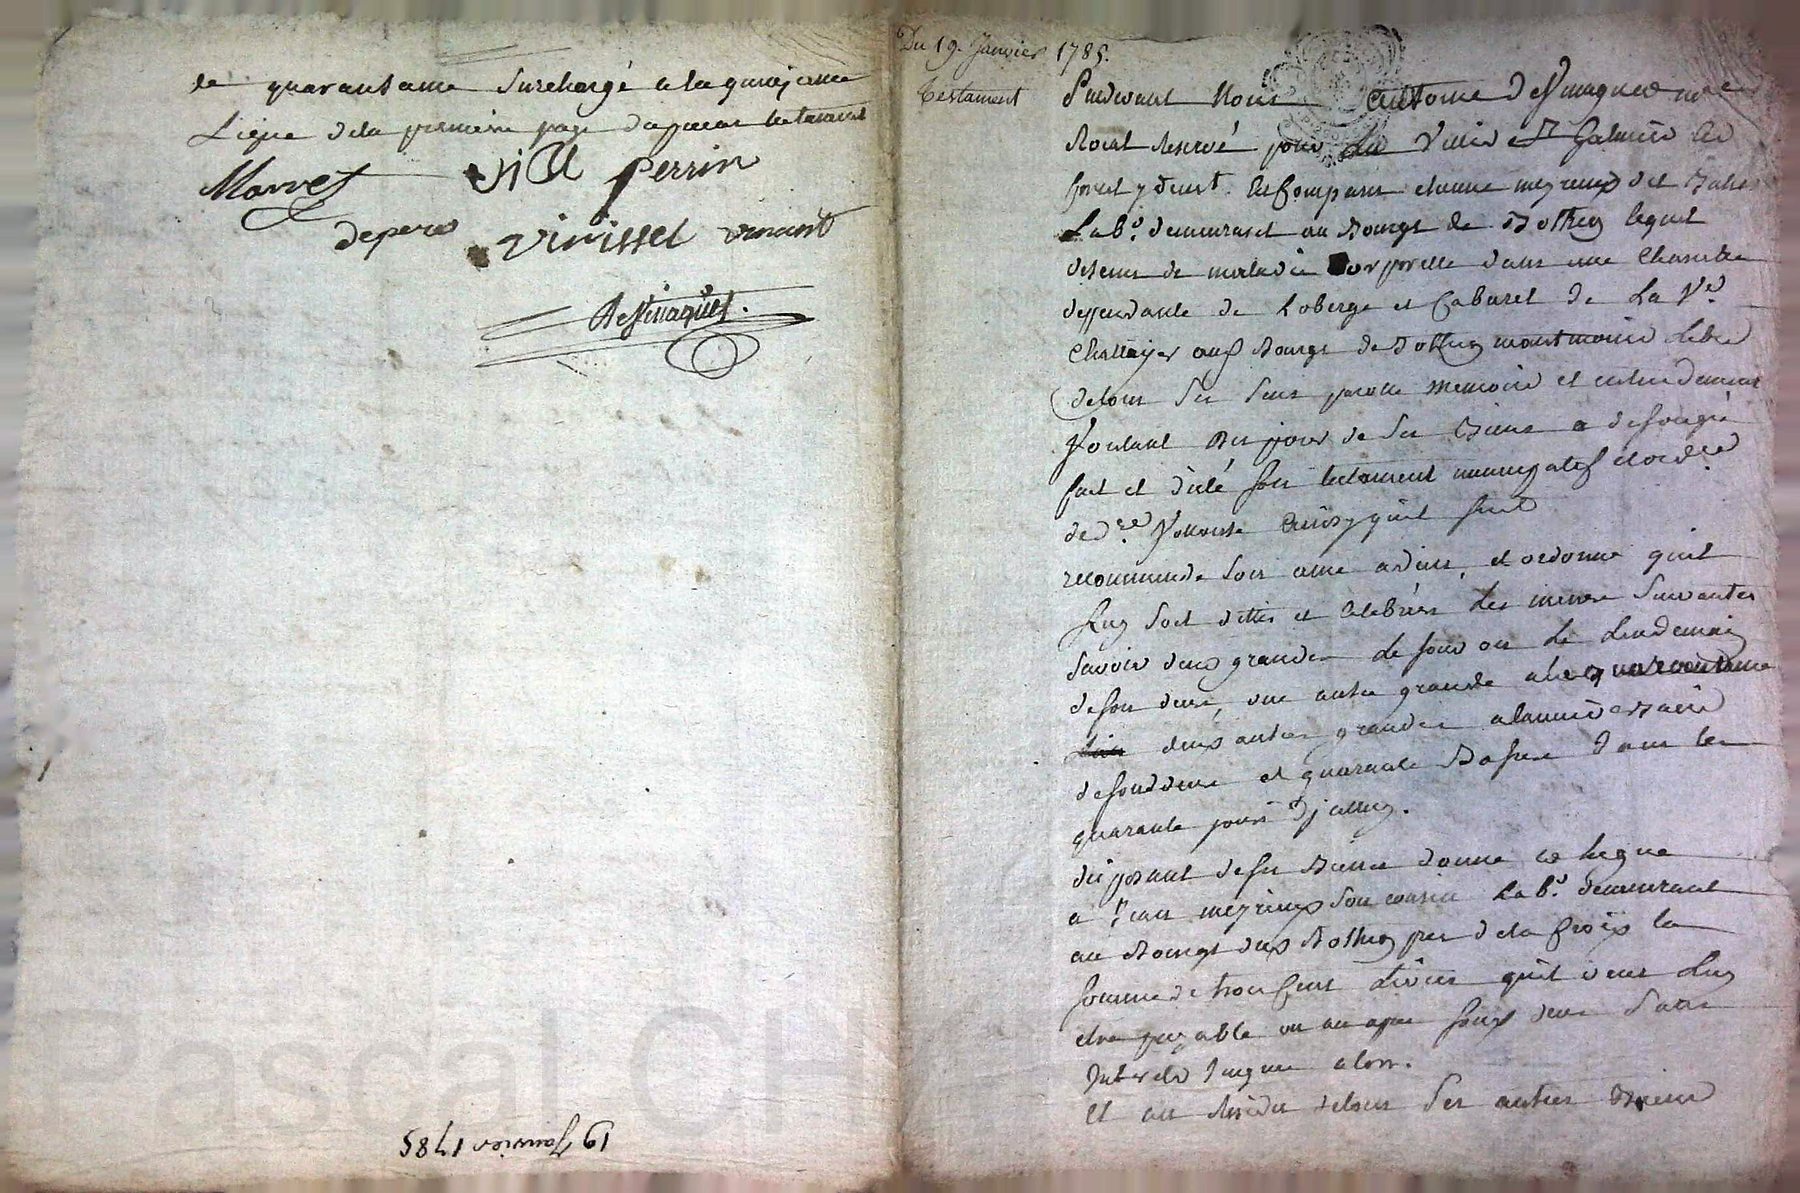 de quarantaine surchargé a la quinzieme
Ligne de la premiere page dupresent testament
Marret Vial Perrin
depera Virisset vincent
Desfinaquest.
19 Janvier 1785
Pascal CH
Du 19. Janvier 1785.
Testament
Pardevant Nous Antoine
Notaire Reservé pour La Ville St Galmier en
forest est Comparu etienne meyrieux
Lab.r demeurant au Bourgt de Botheon lequel
detenu de maladie Corporelle dans une Chambre
dependante de Loberge et Cabaret de La V.e
Chattayer au Bourgt de Botheon neantmoins Libre
detous ses sens parolle memoire et entendement
Voulant disposer de ses Biens a de son gré
fait et dicté son testament nuncupatif et ordre
de d.re Vollonté Ainsy quil suit
recommande son ame a dieu, et ordonne quil
Luy soit dittes et Celebrées Les messes Suivantes
Savoir deux grandes Le Jour ou Le Lendemain
deson deces, une autre grande a la quarantaine
deux autres grandes alanniversaire
desondeces et quarante Basses dans les
quarante jours
disposant deses Biens donne et Legue
a Jean meyrieux son cousin Lab.r demeurant
au Bourgt Botheon pres dela Croix la
somme de trois Cent Livres quil veut Luy
etre payable un an apres son deces Sans
Interets Jusque alors.
Et au Residu detous Ses autres Biens